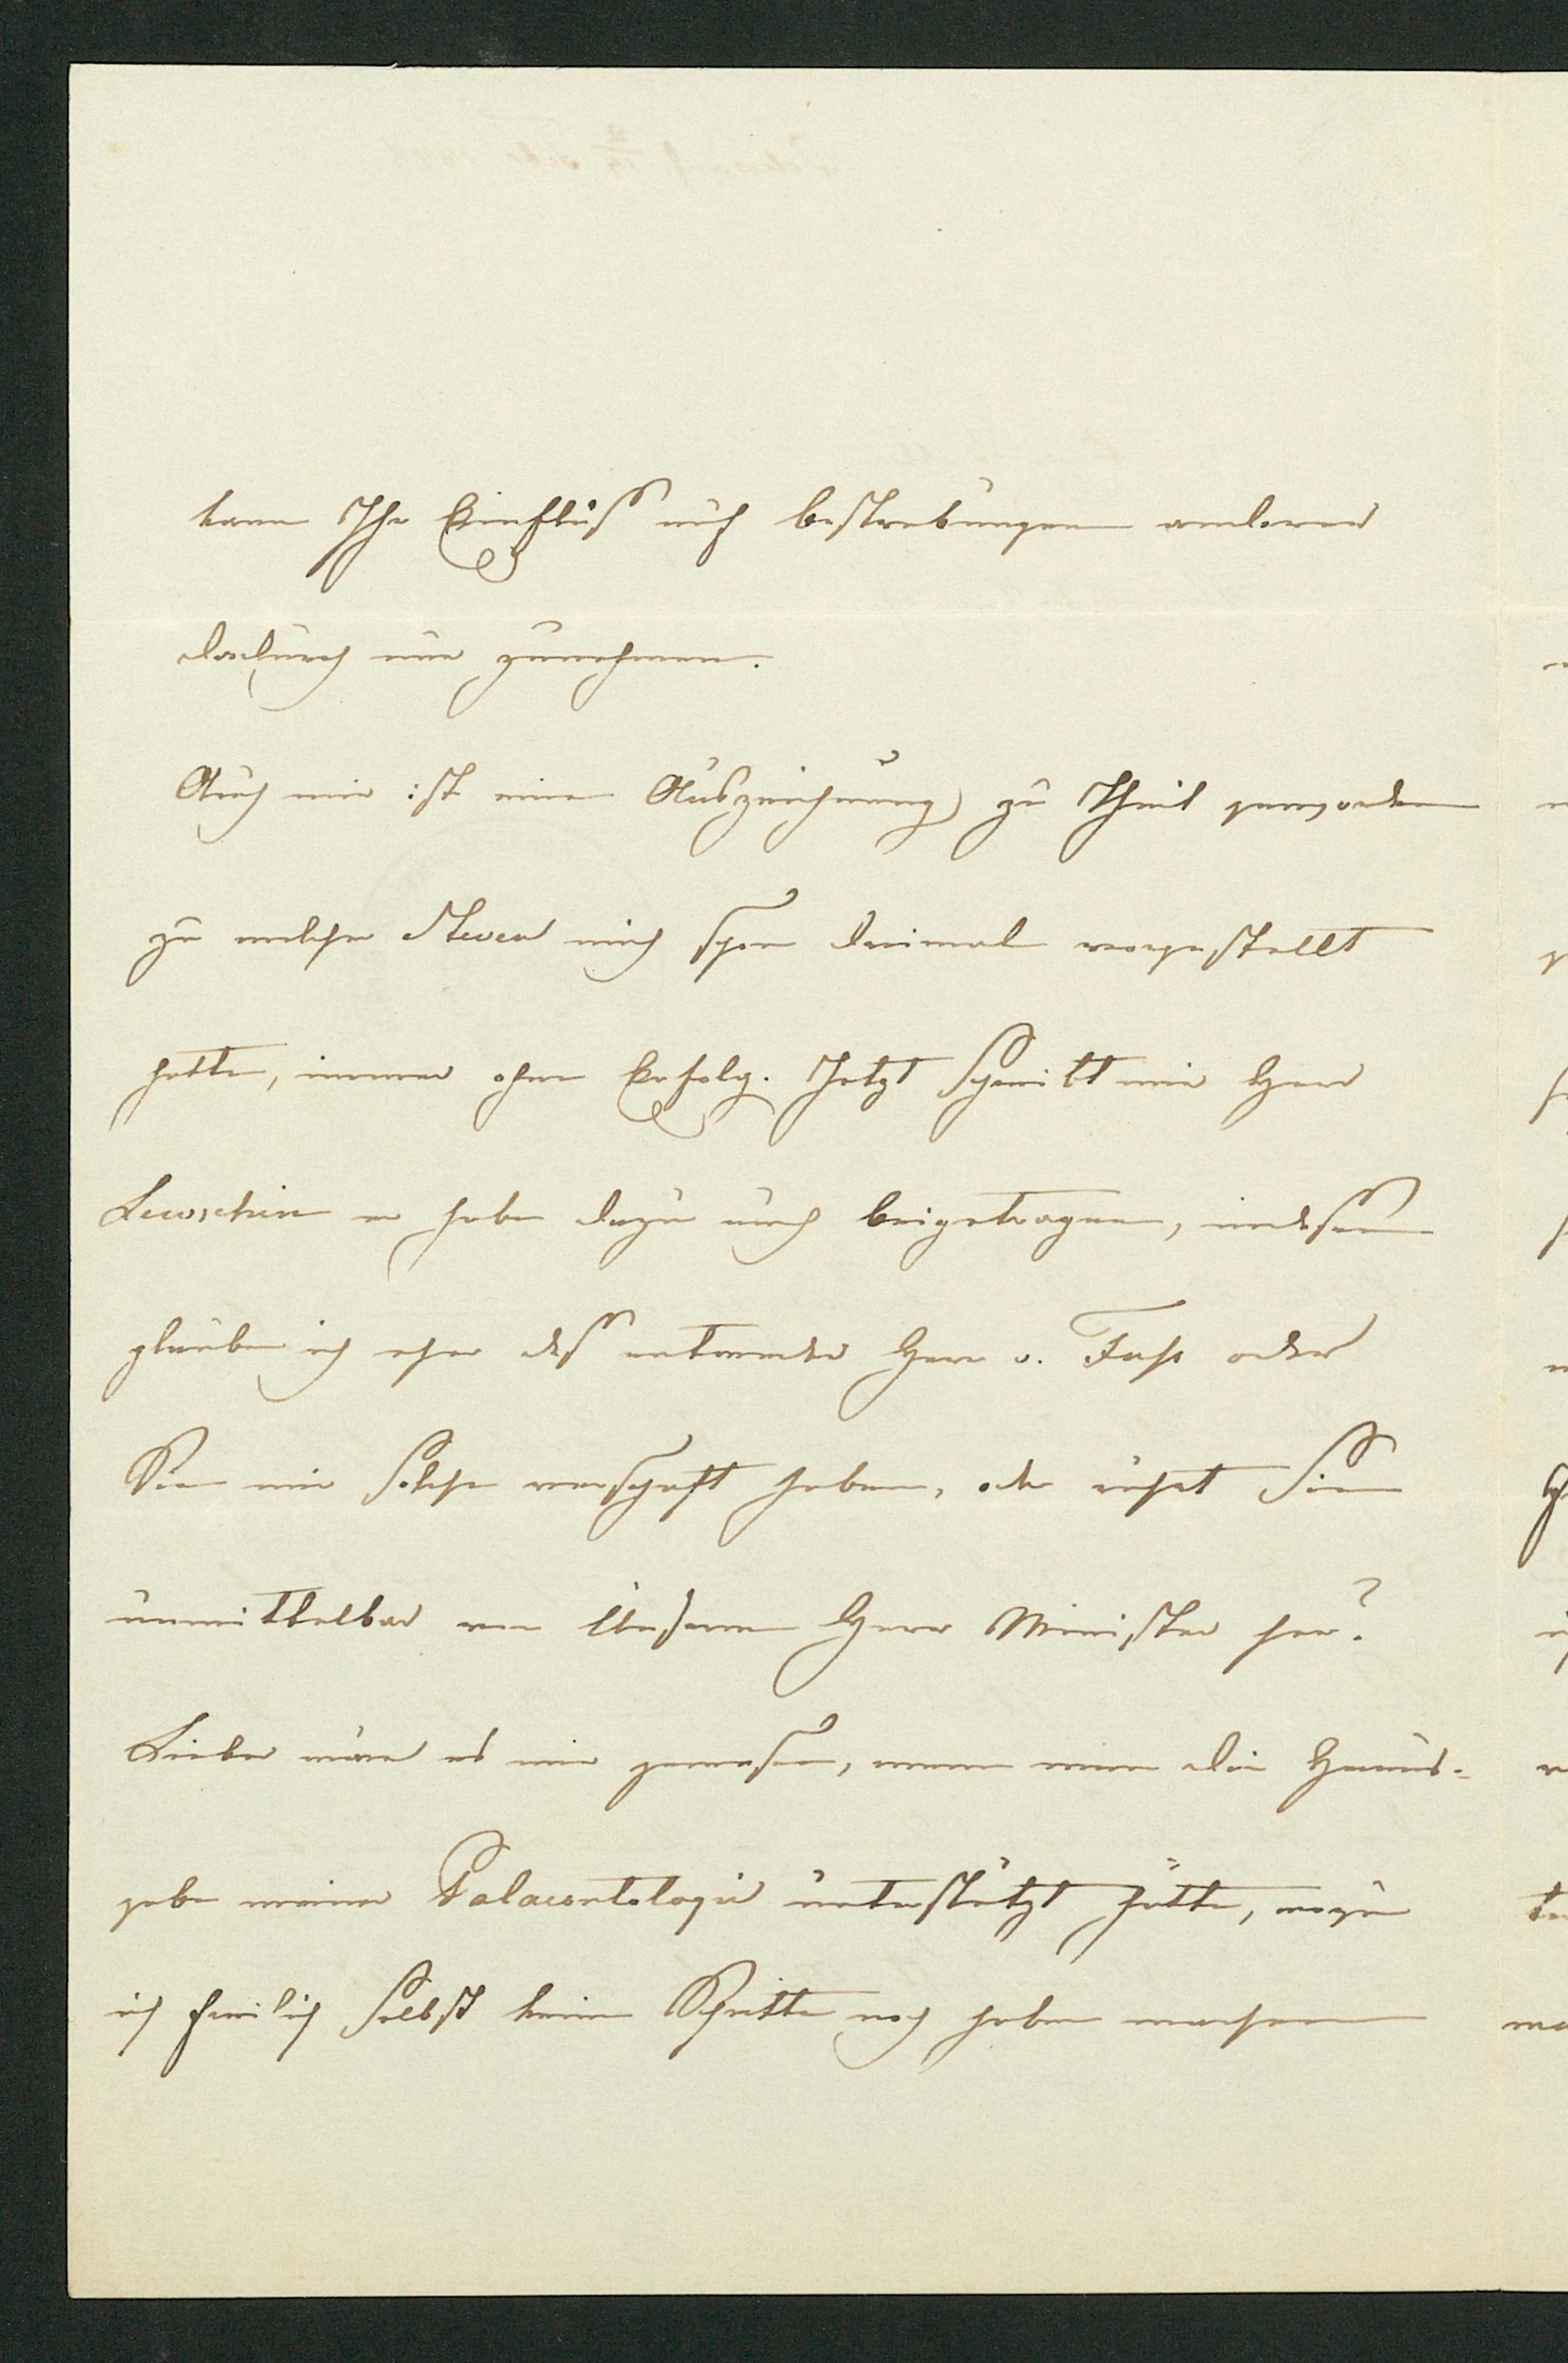 kann Ihr Einfluß auf bestrebungen anderer
dadurch nur zunehmen.
Auch mir ist eine Auszeichnung zu Theil geworden
zu welcher Steven mich schon dreimal vorgestellt
hatte, immer ohne Erfolg. Jetzt schreibt mir Herr
Lewschin er habe dazu auch beigetragen, indessen
glaube ich eher daß entweder Herr v. Fuss oder
Sie mir solche verschaft haben, oder rührt Sie
unmittelbar von Unserem Herrn Minister her?
Lieber wäre es mir gewesen, wenn man die Heraus-
gabe meiner Palaeontologie unterstützt hätte, wozu
ich freilich selbst keine Schritte noch habe machen